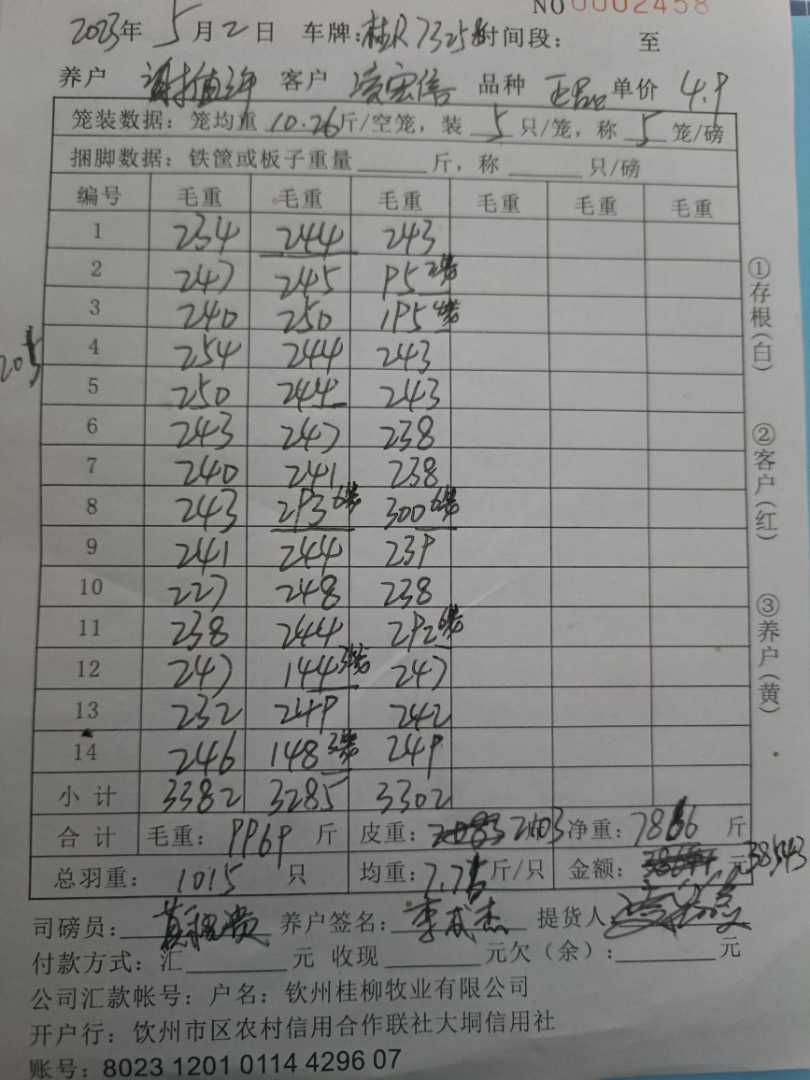 NO 0002458
2023年 5月2日 车牌:桂R73258 时间段: 至
养户 客户 凌宏信 品种 正品 单价 4.9
笼装数据: 笼均重 10.26 斤/空笼, 装 5 只/笼, 称 5 笼/磅
捆脚数据: 铁筐或板子重量 斤, 称 只/磅
编号 毛重 毛重 毛重 毛重 毛重 毛重
1 234 244 243
2 247 245 95 2笼
3 240 250 195 4笼
203
4 254 244 243
5 250 244 243
6 243 247 238
7 240 241 238
8 243 293 6笼 300 6笼
9 241 244 239
10 227 248 238
11 238 244 292 6笼
12 247 144 3笼 247
13 232 249 242
14 246 148 3笼 249
小计 3382 3285 3302
合计 毛重: 9969 斤 皮重: 2103 净重: 7866 斤
总羽重: 1015 只 均重: 7.75 斤/只 金额: 元 38543
司磅员: 养户签名: 李成杰 提货人
付款方式: 汇 元 收现 元欠(余): 元
公司汇款帐号: 户名: 钦州桂柳牧业有限公司
开户行: 钦州市区农村信用合作联社大垌信用社
账号: 8023 1201 0114 4296 07
①存根(白)
②客户(红)
③养户(黄)